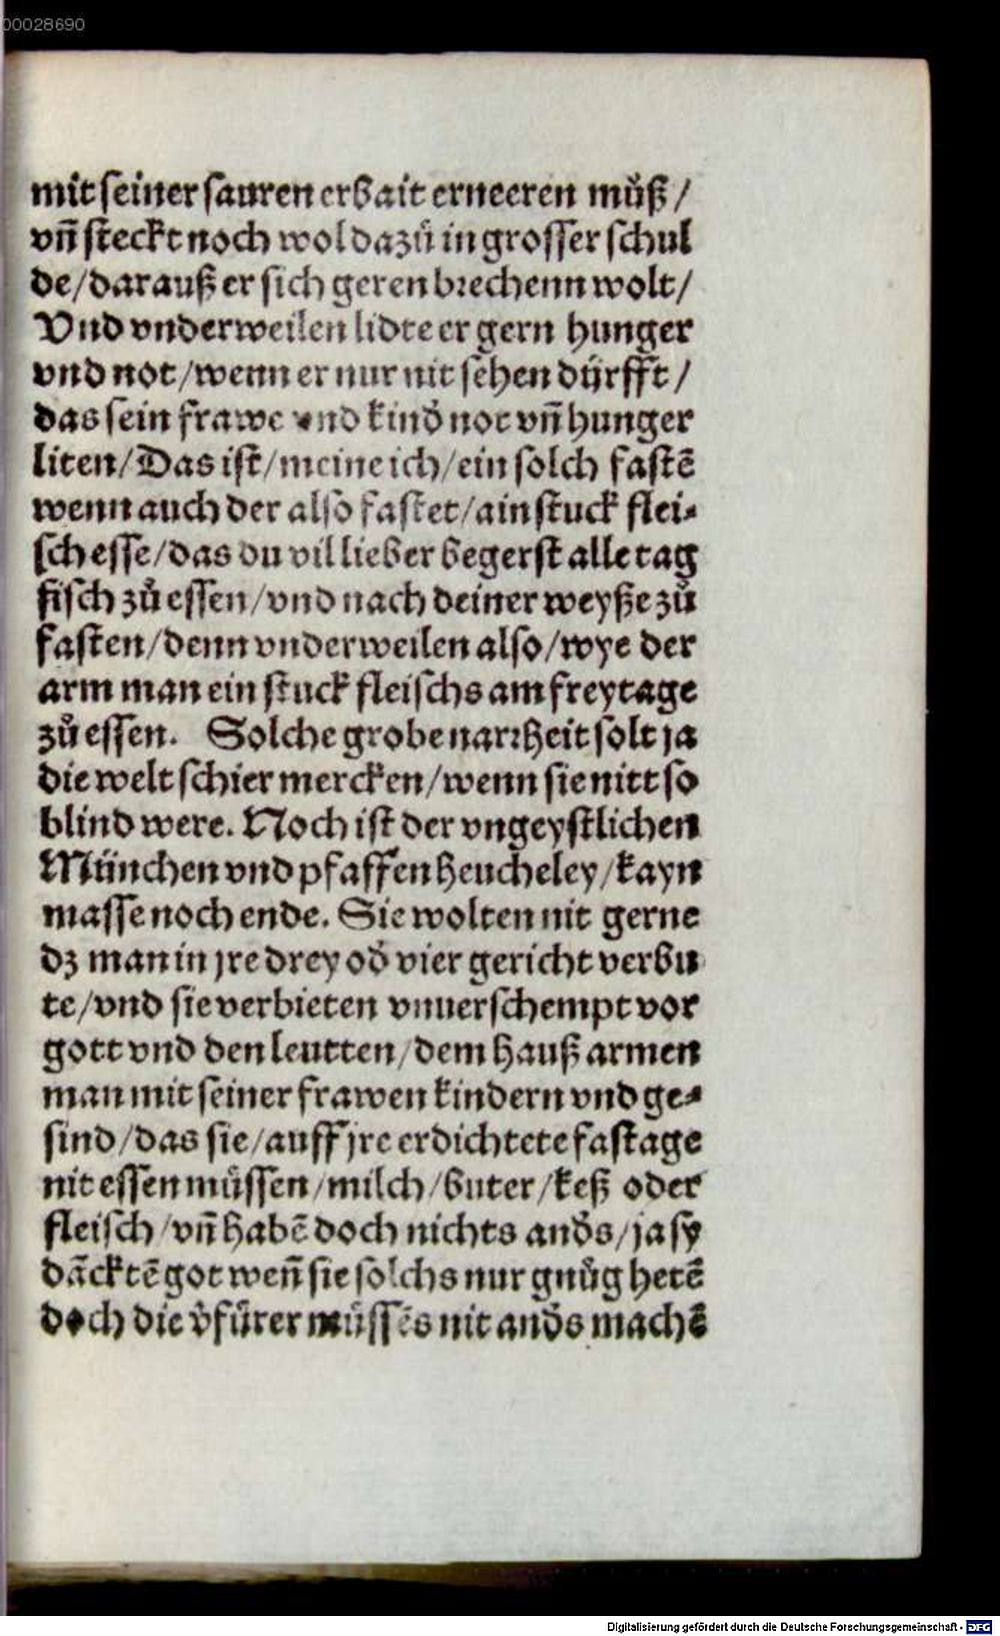 00028690
mit seiner sauren erbait erneeren můß/
vñ steckt noch wol dazů in grosser schul
de/darauß er sich geren brechenn wolt/
Vnd vnderweilen lidte er gern hunger
vnd not/wenn er nur nit sehen dürfft/
das sein frawe vnd kindͦ not vñ hunger
liten/Das ist/meine ich/ein solch fastē
wenn auch der also fastet/ain stuck flei⸗
sch esse/das du vil lieber begerst alle tag
fisch zů essen/vnd nach deiner weyße zů
fasten/denn vnderweilen also/wye der
arm man ein stuck fleischs am freytage
zů essen. Solche grobe narrheit solt ja
die welt schier mercken/wenn sie nitt so
blind were. Noch ist der vngeystlichen
München vnd pfaffen heucheley/kayn
masse noch ende. Sie wolten nit gerne
dz man in jre drey odͦ vier gericht verbu
te/vnd sie verbieten vnuerschempt vor
gott vnd den leutten/dem hauß armen
man mit seiner frawen kindern vnd ge⸗
sind/das sie/auff jre erdichtete fastage
nit essen müssen/milch/buter/keß oder
fleisch/vñ habē doch nichts andͦs/ja sy
dāckтē got weñ sie solchs nur gnůg hetē
doch die vͦfürer müssēs nit andͦs machē
Digitalisierung gefördert durch die Deutsche Forschungsgemeinschaft - DFG